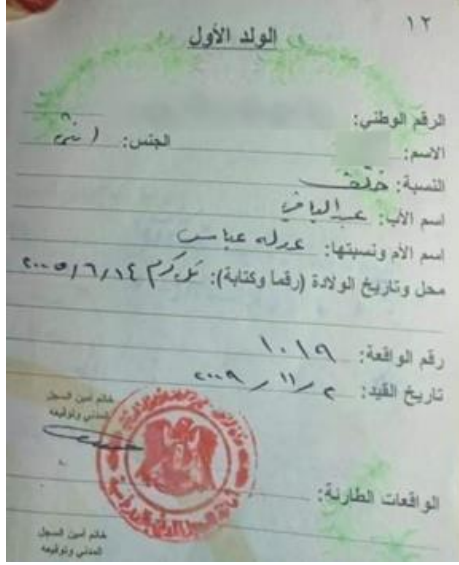 ١٢
الولد الأول
الرقم الوطني:
الاسم: الجنس: انثى
النسبة: خلف
اسم الأب: عبد الباقي
اسم الأم ونسبتها: عدله عباس
محل وتاريخ الولادة (رقما وكتابة): تل كرم ٢٠٠٥/٦/١٤
رقم الواقعة: ١٠١٩
تاريخ القيد: ٢٠٠٩/١١/٢
خاتم أمين السجل
المدني وتوقيعه
الواقعات الطارئة:
خاتم أمين السجل
المدني وتوقيعه